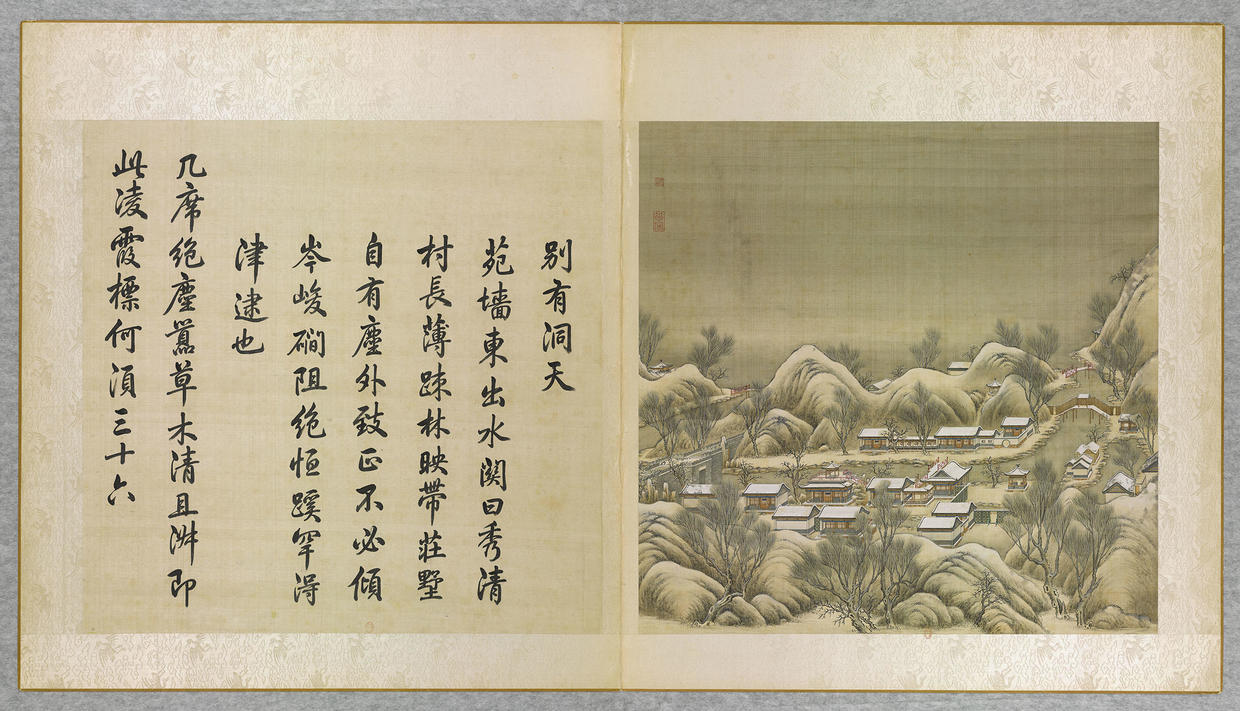 別有洞天
苑墻東出水關曰秀清
村長薄疎林映帶莊墅
自有塵外致正不必傾
岑峻磵阻絶恒蹊罕得
津逮也
几席絶塵囂草木清且淑即
此凌霞標何須三十六